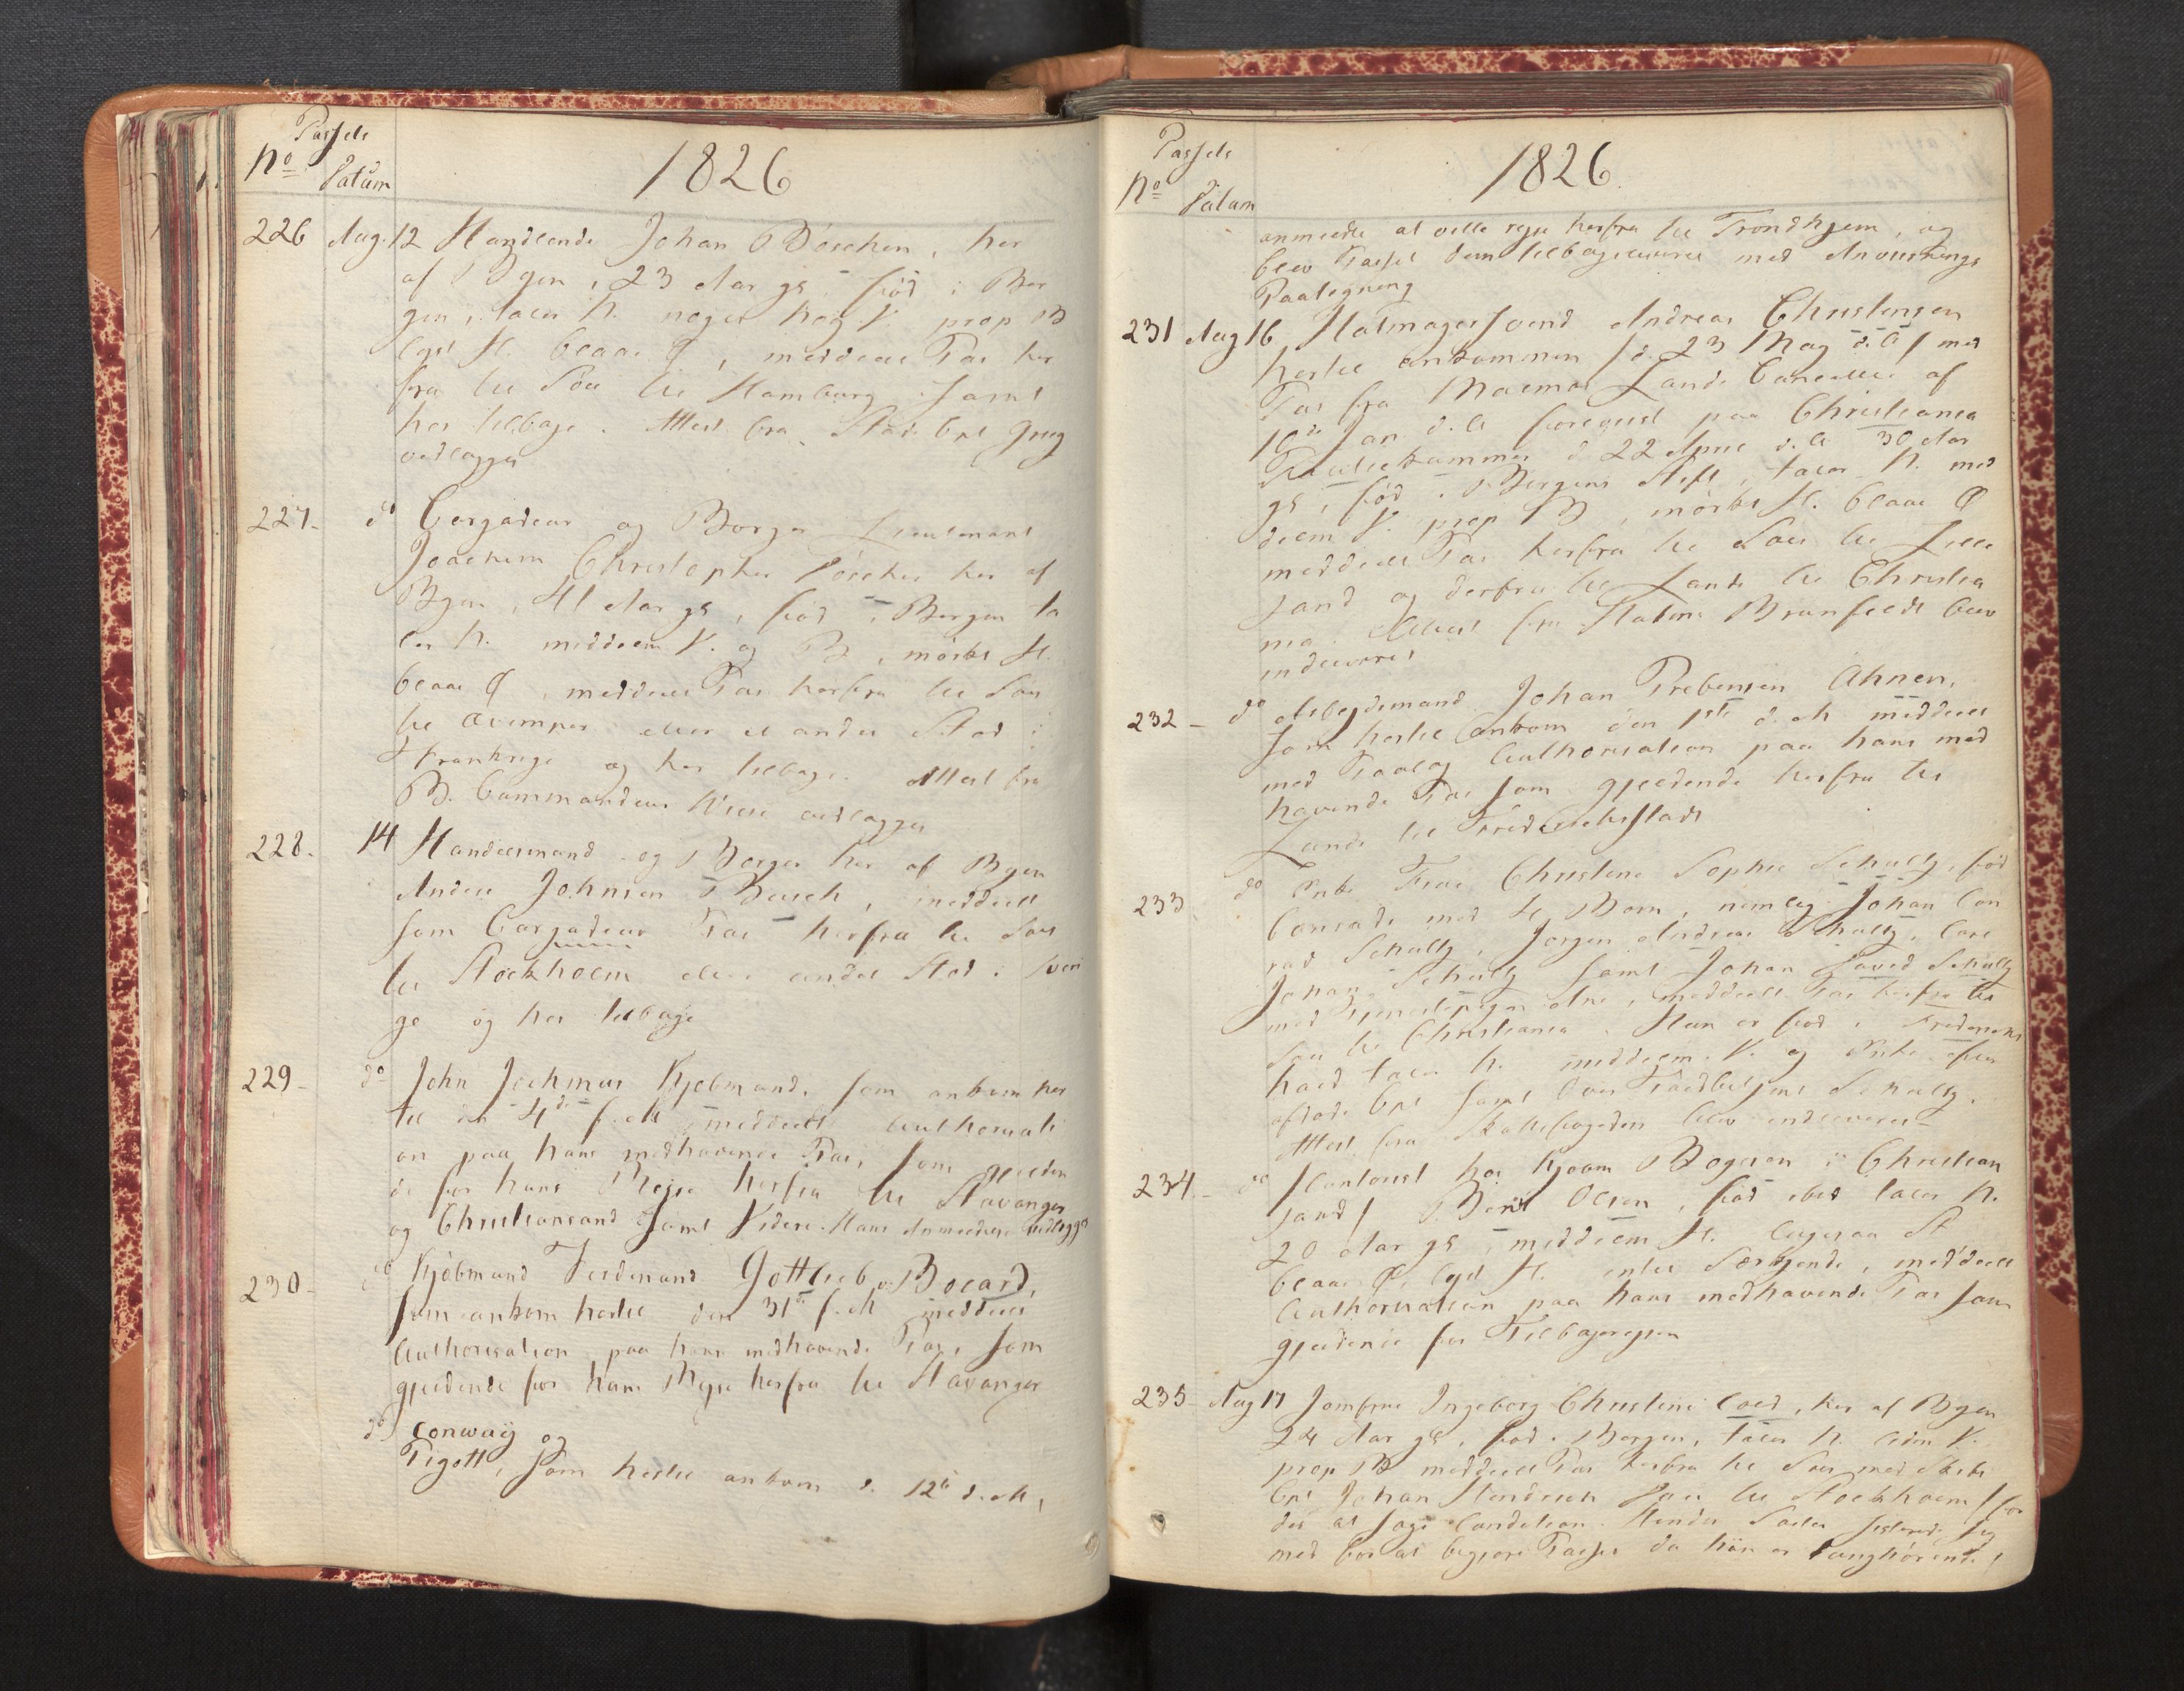 Passets
No Datum
1826
226 Aug. 12 Handlende Johan Böschen, her
af Byen, 23 Aar gl. fød i Ber
gen, taler N. noget høy V. prop B
lyst H. blaae Ø, meddelt Pas her
fra til Søes til Hamburg samt
her tilbage. Attest fra Stads Cpt Grieg
vedlagges
227 - do Cargadeur og Borger Lieutenant
Joachim Christopher her af
Byen, 41 Aar gl, fød i Bergen ta
ler N. middelm V. og B, mørkt H.
blaae Ø, meddelt Pas herfra til Søes
til Qvimper eller et andet Sted i
Frankrige og her tilbage. Attest fra
B. Commandeur Wiese vedlagges
228. 14 Handelsmand og Borger her af Byen
Anders Johnsen Busch, meddelt
som Cargadeur Pas herfra til Søes
til Stockholm eller andet Sted i Sveri
ge og her tilbage
229 - do John Jochmus Kjøbmand, som ankom her
til den 4de f. M, meddelt Authorisati
on paa hans medhavende Pas, som gjelden
de for hans Rejse herfra til Stavanger
og Christiansand samt Videre. Hans Anmeldelse vedlagges
230 - do Kjøbmand Ferdinand Gottlieb v. Bocard,
som ankom hertil den 31te f. M meddelt
Authorisation paa hans medhavende Pas, som
gjeldende for hans Rejse herfra til Stavanger
do Conwaÿ og
Pigott, som hertil ankom d. 12te d. M,
Passets
No Datum
1826.
anmeldte at ville rejse herfra til Trondhjem, og
blev Passet dem tilbageleveret med Anviisnings
Paategning
231 Aug 16 Hatmagersvend Andreas Christensen
hertil ankommen /d. 23 May d. A/ med
Pas fra Malmøe Lands Cancellie af
10de Jan. d. A foreviist paa Christiania
Politiekammer d 22 April d. A 30 Aar
gl, fød i Bergens Stift, taler N. mid
delm V. prop B, mørkt H. blaae Ø
meddelt Pas herfra til Søes til Lille
sand og derfra til Lands til Christia
nia. Attest fra Hatm: Brunfeldt blev
indleveret
232 - do Arbejdsmand Johan Prebensen Ahnen,
som hertil ankom den 1ste d. M meddelt
med Paateg Authorisation paa hans med
havende Pas som gjeldende herfra til
Lands til Friderichsstadt
233 do Enke Frue Christine Sophie Schultz, fød
Conradi med 4 Børn, nemlig Johan Con
rad Schultz, Jørgen Andreas Schultz, Carl
Johan Schultz samt Johan David Schultz
med Tjenestepigen Ane, meddelt Pas herfra til
Søes til Christiania. Hun er fød i Friderichs
hald taler N. middelm. V. og Enke efter
afdøde Cpt samt Over Schultz.
Attest fra Skattefogden blev indleveret
234 - do /Contorist hos Kjøbm Bogesen i Christian
sand/ Bent Olsen, fød ibid taler N.
20 Aar gl, middelm H. St
blaae Ø, lyst H. intet Særkjende, meddelt
Authorisation paa hans medhavende Pas som
gjeldende for Tilbagerejsen
235 - Aug 17 Jomfrue Ingeborg Christine Coed, her af Byen
24 Aar gl, fød i Bergen, taler N. liden V.
prop B meddelt Pas herfra til Søes med Skibs
Cpt Johan Hendrich til Stockholm /for
der at søge Condition. Hendes Fader sisterede sig
med for at begjere Passet da hun er tunghørende/